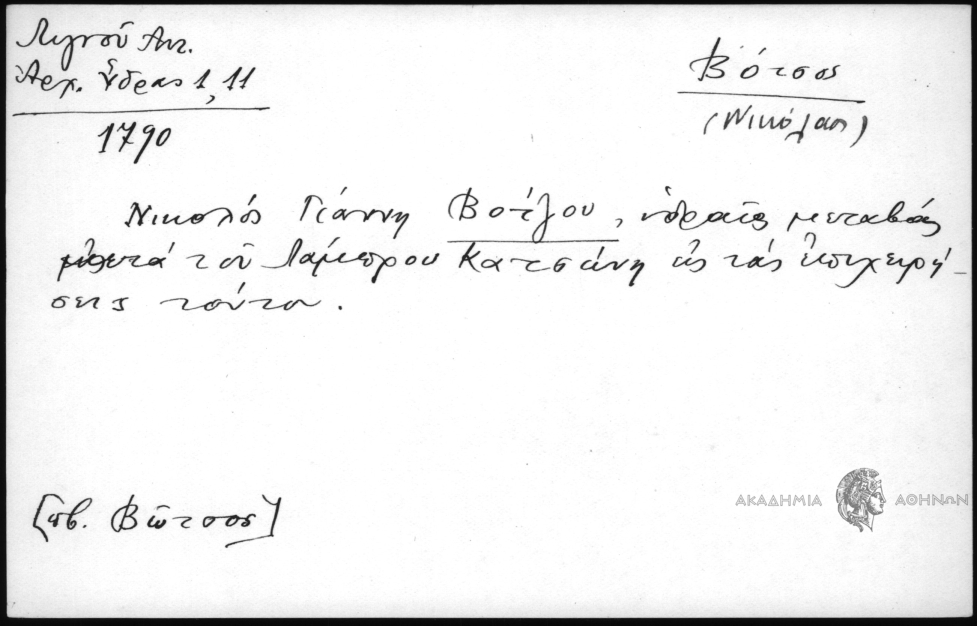 Λιγνοῦ Αντ.
Αρχ. Ὕδρας 1, 11
1790
Βότσος
(Νικόλαος)
Νικολός Γιάννη Βοτζου, υδραῖος μεταβάς
μετά τοῦ Λάμπρου Κατσώνη εἰς τάς ἐπιχειρή-
σεις τούτου.
[πβ. Βῶτσος]
ΑΚΑΔΗΜΙΑ ΑΘΗΝΩΝ